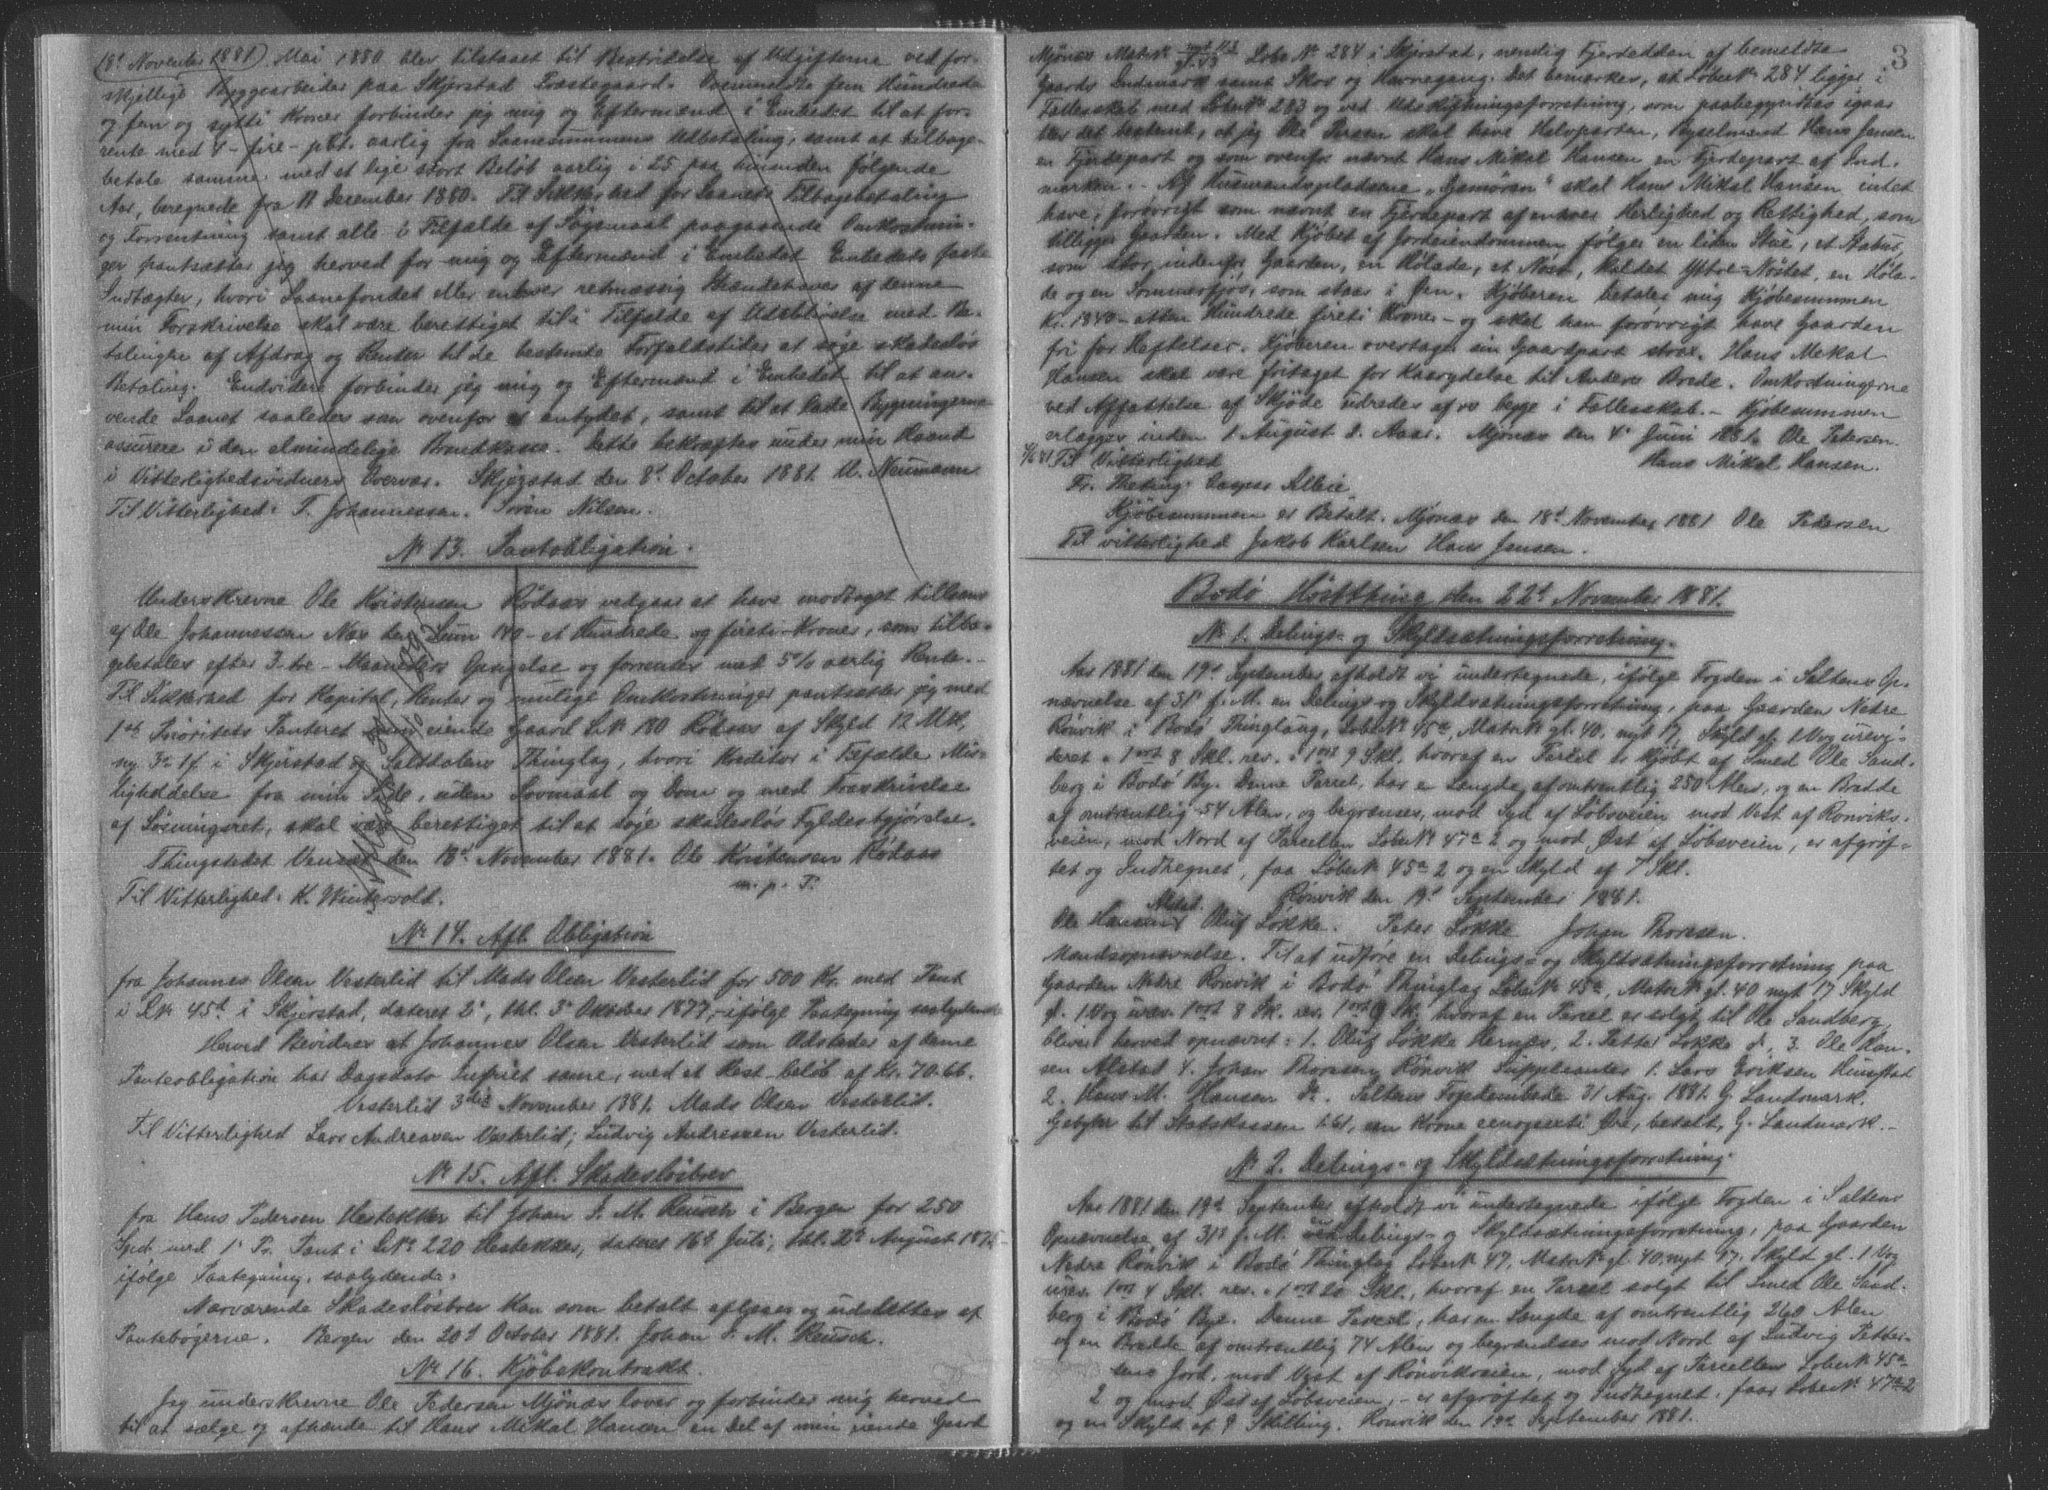 (18d November 1881). Mai 1880 blev tilstaaet til Bestridelse af Udgifterne ved for-
skjellige Byggearbeider paa Skjerstad Præstegaard. Ovenmeldte fem Hundrede
og fem og sytti Kroner forbinder jeg mig og Eftermænd i Embedet til at for-
rente med 4 - fire - pCt. aarlig fra Laanesummens Udbetaling, samt at tilbage-
betale samme med et lige stort Beløb aarlig i 25 paa hinanden følgende
Aar, beregnede fra 11 December 1880. Til Sikkerhed for Laanets Tilbagebetaling
og Forrentning samt alle i Tilfælde af Søgsmaal paagaaende Omkostnin-
ger pantsætter jeg herved for mig og Eftermænd i Embedet Embedets faste
Indtægter, hvori Laanefondet eller enhver retmæssig Ihændehaver af denne
min Forskrivelse skal være berettiget til i Tilfælde af Udeblivelse med Be-
talingen af Afdrag og Renter til de bestemte Forfaldstider at søge skadesløs
Betaling. Endvidere forbinder jeg mig og Eftermænd i Embedet til at an-
vende Laanet saaledes som ovenfor er antydet, samt til at lade Bygningerne
assurere i den almindelige Brandkasse. Dette bekræftes under min Haand
i Vitterlighedsvidners Overvær. Skjerstad den 8d October 1881. U. Neumann
Til Vitterlighed: T. Johannessen. Søren Nilsen.
No 13. Pantobligation.
Underskrevne Ole Kristensen Rødaas vedgaar at have modtaget tillaans
af Ole Johannessen Næs den Sum 140 - et Hundrede og fireti Kroner, som tilba-
gebetales efter 3 - tre - Maaneders Opsigelse og forrentes med 5% aarlig Rente.
Til Sikkerhed for Kapital, Renter og mulige Omkostninger pantsætter jeg med
1ste Prioritets Panteret min eiende Gaard L No 180 Rødaas af Skyld 12 Mk,
ny 3 i Skjerstad og Saltdalens Thinglag, hvori Kreditor i Tilfælde Mis-
ligheddelse fra min Side, uden Lovmaal og Dom og med Fraskrivelse
af Løsningsret, skal være berettiget til at søge skadesløs Fyldestgjørelse.
Thingstedet Venset den 18d November 1881. Ole Kristensen Rødaas
m. p. P.
Til Vitterlighed: K. Wintervold.
No 14. Afl. Obligation
fra Johannes Olsen Vesterlid til Mads Olsen Vesterlid for 500 Kr. med Pant
i L No 45d i Skjerstad, dateret 2d, thl. 3d Oktober 1877, ifølge Paategning saalydende
Herved Bevidnes at Johannes Olsen Vesterlid som Udsteder af denne
Panteobligation har Dagsdato Indfriet samme, med et Rest-beløb af Kr. 70.66.
Vesterlid 3die November 1881. Mads Olsen Vesterlid.
Til Vitterlighed Lars Andreasen Vesterlid, Ludvig Andressen Vesterlid.
No 15. Afl. Skadesløsbrev
fra Hans Pedersen Hestekker til Johan F. M. Reusch i Bergen for 250
Spd. med 1 Pr. Pant i L No 220 Hestekker, dateret 16d Juli, thl. 2d August 1875
ifølge Paategning, saalydende:
Nærværende Skadesløsbrev kan som betalt aflyses og udslettes af
Pantebøgerne. Bergen den 20d October 1881. Johan F. M. Reusch.
No 16. Kjøbekontrakt.
Jeg underskrevne Ole Pedersen Mjønæs lover og forbinder mig herved
til at sælge og afhænde til Hans Mikal Hansen en Del af min eiende Gaard
3
Mjønæs Matr No Løbe No 284 i Skjerstad, nemlig Fjerdedelen af bemeldte
Gaards Indmark samt Skov og Havnegang. Det bemærkes, at Løbe No 284 ligger i
Fællesskab med Løbe No 283 og ved Udskiftningsforretning, som paabegyndtes igaar
blev det bestemt, at jeg Ole Persen skal have Halvparten, Bygselmand Hans Jensen
en Fjerdepart og som ovenfor nævnt Hans Mikal Hansen en Fjerdepart af Ind-
marken. - Af Husmandspladsene skal Hans Mikal Hansen intet
have, forøvrigt som nævnt en Fjerdepart af enhver Herlighed og Rettighed, som
tilligger Gaarden. Med Kjøbet af Jordeiendommen følger en liden Stue, et Stabur,
som staar indenfor Gaarden, en Hølade, et Nøst, kaldet Yttre-Nøstet, en Høla-
de og en Sommerfjøs, som staar i Jen. Kjøberen betaler mig Kjøbesummen
Kr. 1840 - atten Hundrede fireti Kroner - og skal han forøvrigt have Gaarden
fri for Heftelser. Kjøberen overtager sin Gaardpart strax. Hans Mekal
Hansen skal være fritaget for Kaarydelse til Anders Brede. Omkostningerne
ved Affattelse af Skjøde udredes af os begge i Fællesskab. - Kjøbesummen
erlægges inden 1 August d. Aar. Mjønæs den 4d Juni 1881. Ole Pedersen.
Til Vitterlighed Hans Mikal Hansen.
Fr. Theting. Caspar Albie
Kjøbesummen er Betalt. Mjønæs den 18d November 1881 Ole Pedersen
Til vitterlighed Jakob Karlsen Hans Jensen.
Bodø Høstthing den 22d November 1881.
No 1. Delings- og Skyldsætningsforretning.
Aar 1881 den 19d September afholdt vi undertegnede, ifølge Fogden i Saltens Op-
nævnelse af 31d f. M. en Delings og Skyldsætningsforretning, paa Gaarden Nedre
Rønvik i Bodø Thinglaug, Løbe No 45a, Matr No gl. 40, nyt 17, Skyld gl. 1 Vog urevi-
deret, 1 ort 8 Skl. rev. 1 ort 9 Skl. hvoraf en Parcel er kjøbt af Smed Ole Sand-
berg i Bodø By. Denne Parcel, har en Længde af omtrentlig 250 Alen, og en Bredde
af omtrentlig 54 Alen, og begrænses, mod Syd af Løbsveien mod Vest af Rønviks-
veien, mod Nord af Parcellen Løbe No 47a2 og mod Øst af Løbsveien, er afgrøf-
tet og Indhegnet, faar Løbe No 45a2 og en Skyld af 7 Skl.
Rønvik den 19d September 1881.
Ole Hansen Alstad. Oluf Løkke. Peter Løkke Johan Thoresen.
Mandsopnævnelse. Til at udføre en Delings- og Skyldsætningsforretning paa
Gaarden Nedre Rønvik i Bodø Thinglag Løbe No 45a, Matr No gl. 40 nyt 17 Skyld
gl. 1 Vog urev. 1 ort 8 Sk. rev. 1 ort 9 Sk. hvoraf en Parcel er solgt til Ole Sandberg,
bliver herved opnævnt: 1. Oluf Løkke Hernæs, 2. Petter Løkke d., 3. Ole Han-
sen Alstad 4. Johan Thoresen Rønvik Suppleanter 1. Lars Eriksen Hunstad
2. Hans M. Hansen do. Saltens Fogedembede 31 Aug. 1881. G. Landmark.
Gebyhr til Statskassen 1.61, een Krone eenogseksti Øre, betalt, G. Landmark. -
No 2. Delings- og Skyldsætningsforretning.
Aar 1881 den 19d September afholdt vi undertegnede ifølge Fogden i Saltens
Opnævnelse af 31d f. M. en Delings- og Skyldsætningsforretning, paa Gaarden
Nedre Rønvik i Bodø Thinglag Løbe No 47, Matr No gl. 40, nyt 17. Skyld gl. 1 Vog
urev. 1 ort 4 Skl. rev. 1 ort 20 Skl., hvoraf en Parcel solgt til Smed Ole Sand-
berg i Bodø Bye. Denne Parcel, har en Længde af omtrentlig 260 Alen
og en Bredde af omtrentlig 74 Alen og begrændses mod Nord af Ludvig Petter-
sens Jord, mod Vest af Rønvikveien, mod Syd af Parcellen Løbe No 45a
2 og mod Øst af Løbsveien, - er afgrøftet og Indhegnet, faar Løbe No 47a2
og en Skyld af 9 Skilling. Rønvik den 19d September 1881.